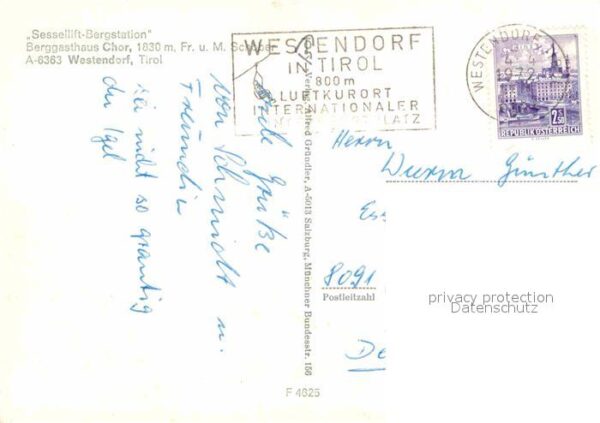 „Sessellift-Bergstation"
Berggasthaus Chor, 1830 m, Fr. u. M.
A-6363 Westendorf, Tirol
WESTENDORF
IN TIROL
800m
LUFTKURORT
INTERNATIONALER
PLATZ
WESTENDORF
1972
2.50
REPUBLIK ÖSTERREICH
Viele Grüße
von Schmidt u.
Freundin
sei nicht so grantig
du Igel
Verlag Alfred Gründler, A-5013 Salzburg, Münchner Bundesstr. 156
Herrn
Günther
8091
Postleitzahl
privacy protection
Datenschutz
De
F 4625